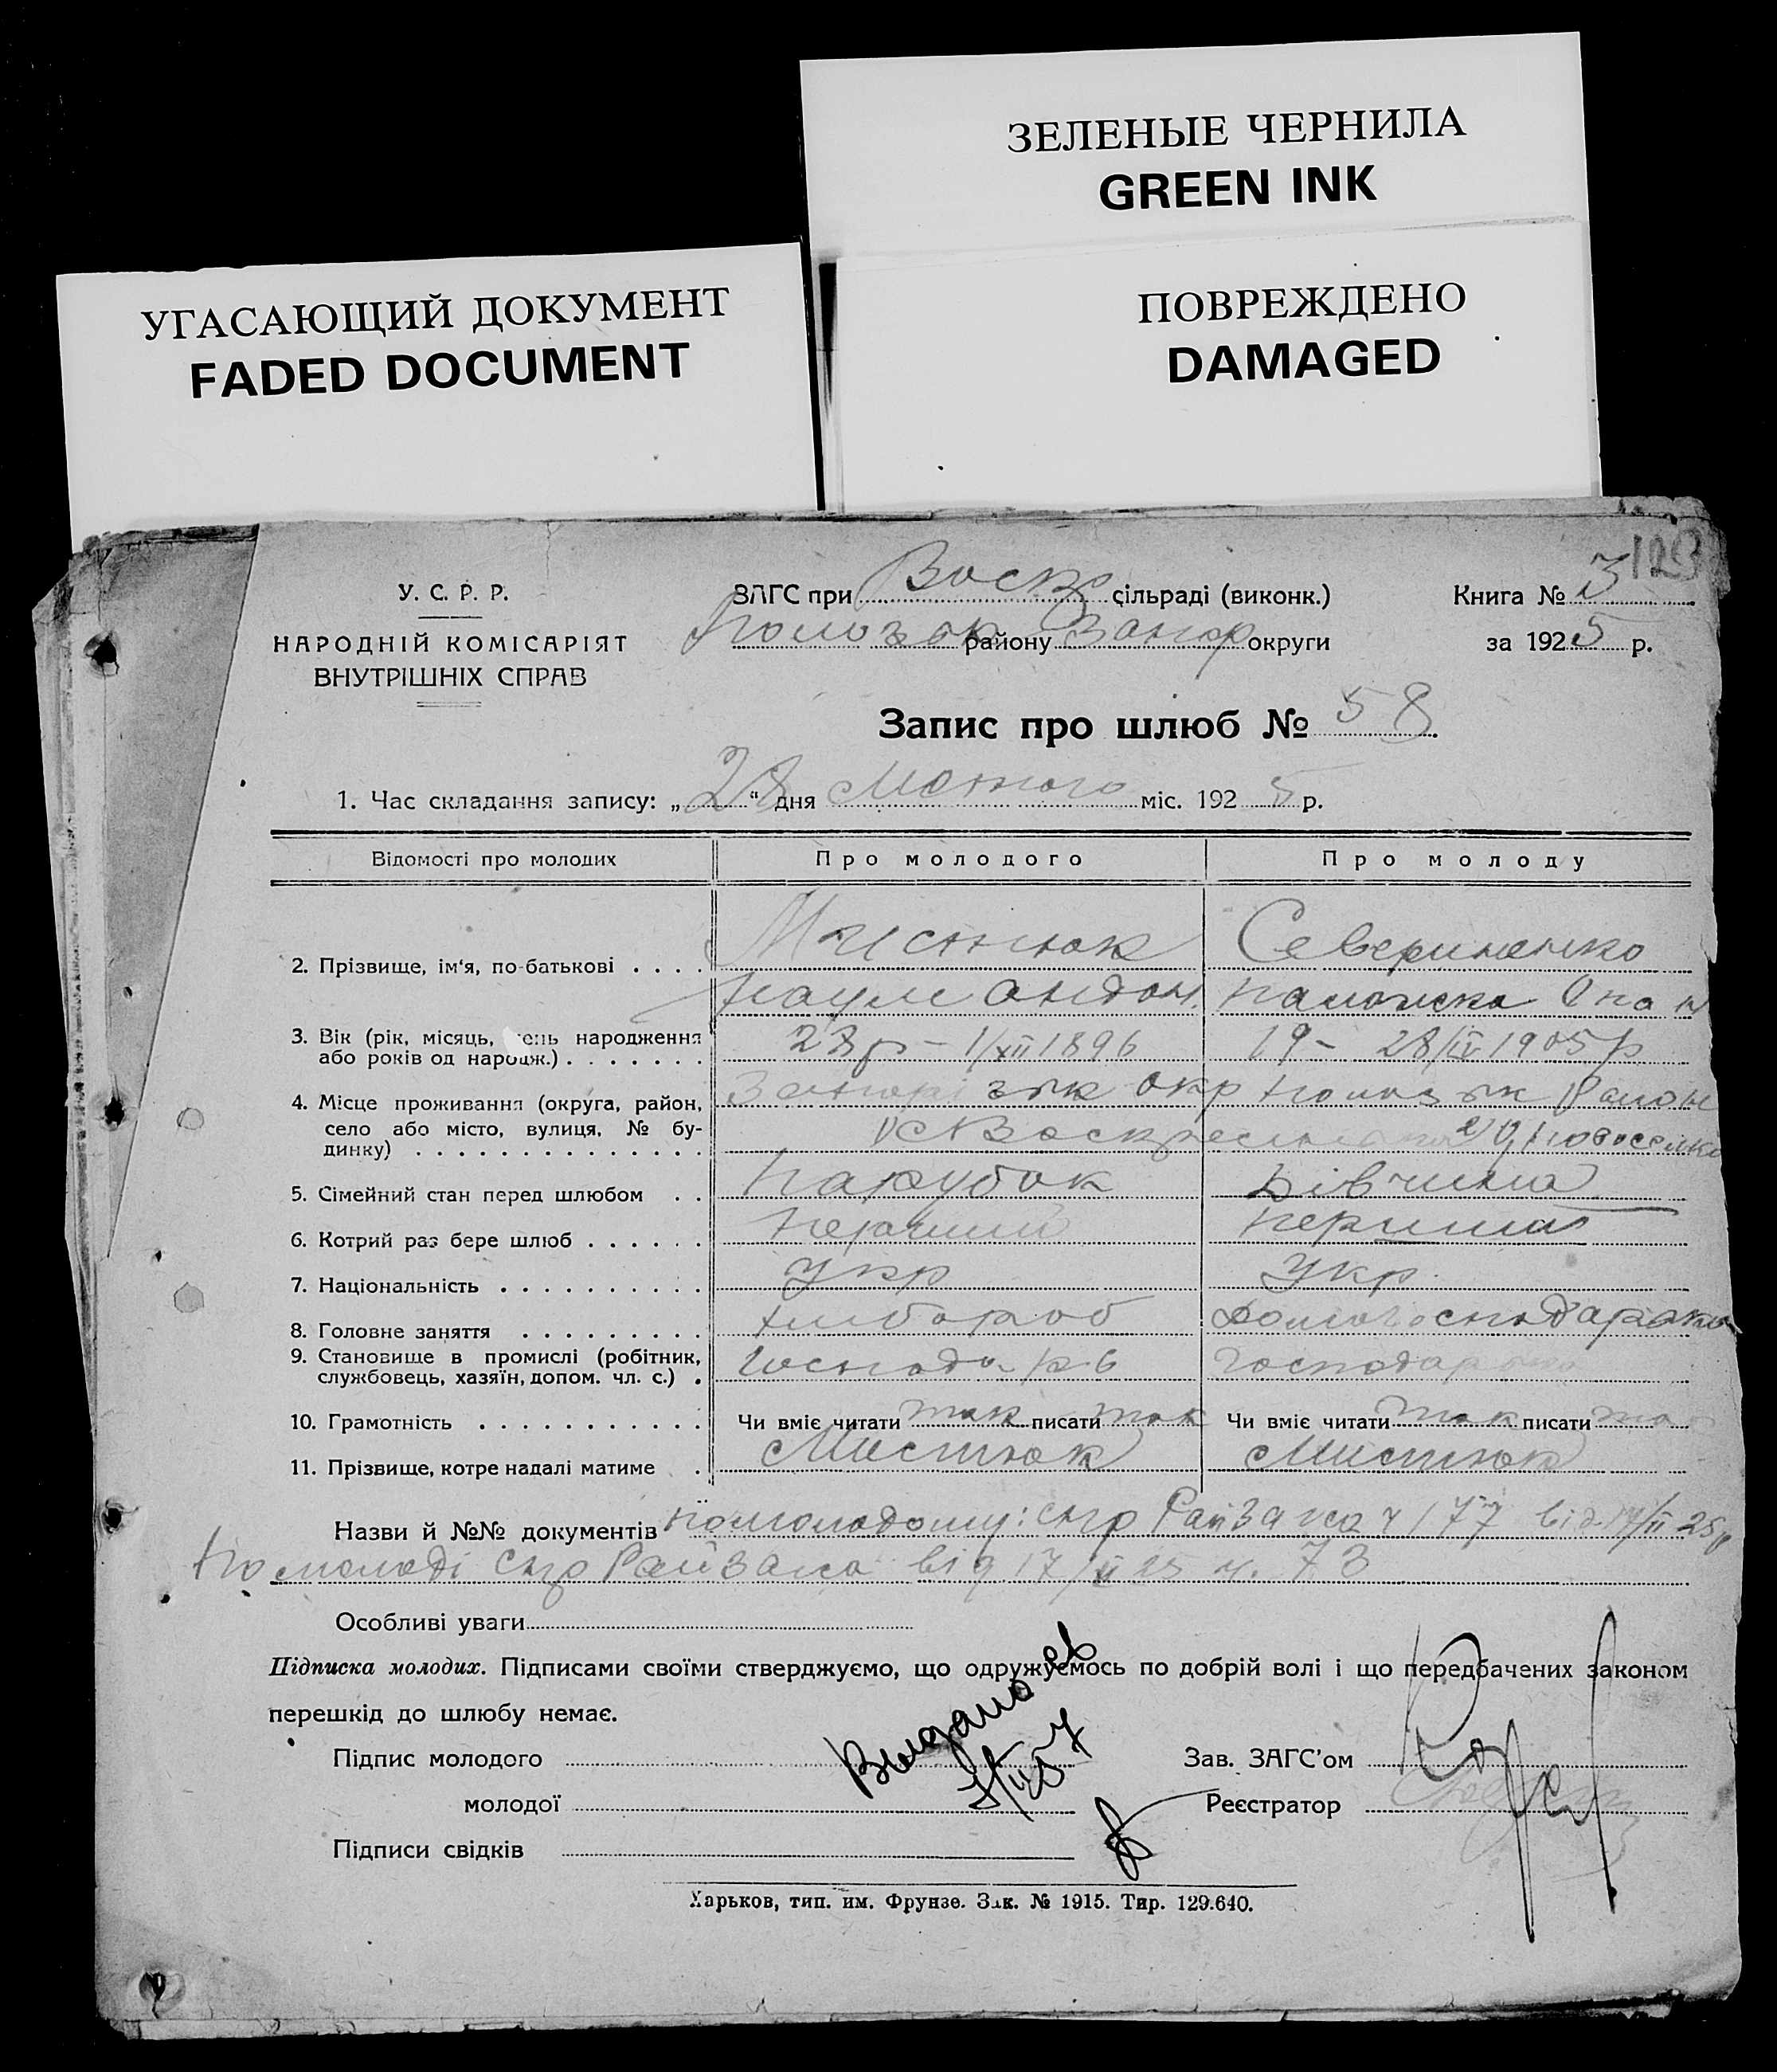 ЗЕЛЕНЫЕ ЧЕРНИЛА
GREEN INK
УГАСАЮЩИЙ ДОКУМЕНТ
FADED DOCUMENT
ПОВРЕЖДЕНО
DAMAGED
123
У. С. Р. Р.
НАРОДНІЙ КОМІСАРІЯТ
ВНУТРІШНІХ СПРАВ
ЗАГС при Воскр сільраді (виконк.)
району Запор округи
Книга № 3
за 1925 р.
Запис про шлюб № 58
1. Час складання запису: „28“ дня Лютого міс. 1925 р.
Відомості про молодих Про молодого Про молоду
2. Прізвище, ім'я, по-батькові . . . . Мистюк Севериненко
Наум
3. Вік (рік, місяць, день народження або років од народж.) . . . . . . . 28р – 1/XII 1896 19 – 28/IV 1905р
4. Місце проживання (округа, район, село або місто, вулиця, № будинку) . . . . . . . . . . . . . . . окр Район
5. Сімейний стан перед шлюбом . . Парубок Дівчина
6. Котрий раз бере шлюб . . . . . . Перший Перший
7. Національність . . . . . . . . . . Укр Укр.
8. Головне заняття . . . . . . . . . хлібороб
9. Становище в промислі (робітник, службовець, хазяїн, допом. чл. с.) .
10. Грамотність . . . . . . . . . . . Чи вміє читати так писати так Чи вміє читати так писати так
11. Прізвище, котре надалі матиме . Мистюк Мистюк
Назви й №№ документів По молодому: спр РайЗагса ч 177 від 17/II 25р
По молоді спр РайЗагса від 17/II 25 ч. 73
Особливі уваги
Підписка молодих. Підписами своїми стверджуємо, що одружуємось по добрій волі і що передбачених законом
перешкід до шлюбу немає.
Підпис молодого
молодої
Підписи свідків
Зав. ЗАГС'ом
Реєстратор
Харьков, тип. им. Фрунзе. Зак. № 1915. Тир. 129.640.